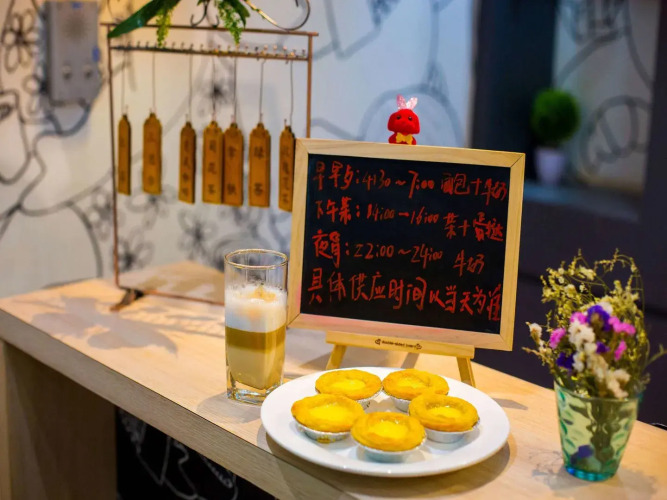 早早夕:4:30~7:00 面包+牛奶
下午茶:14:00→16:00 茶+蛋挞
夜宵:22:00~24:00 牛奶
具体供应时间以当天为准
拿铁
绿茶